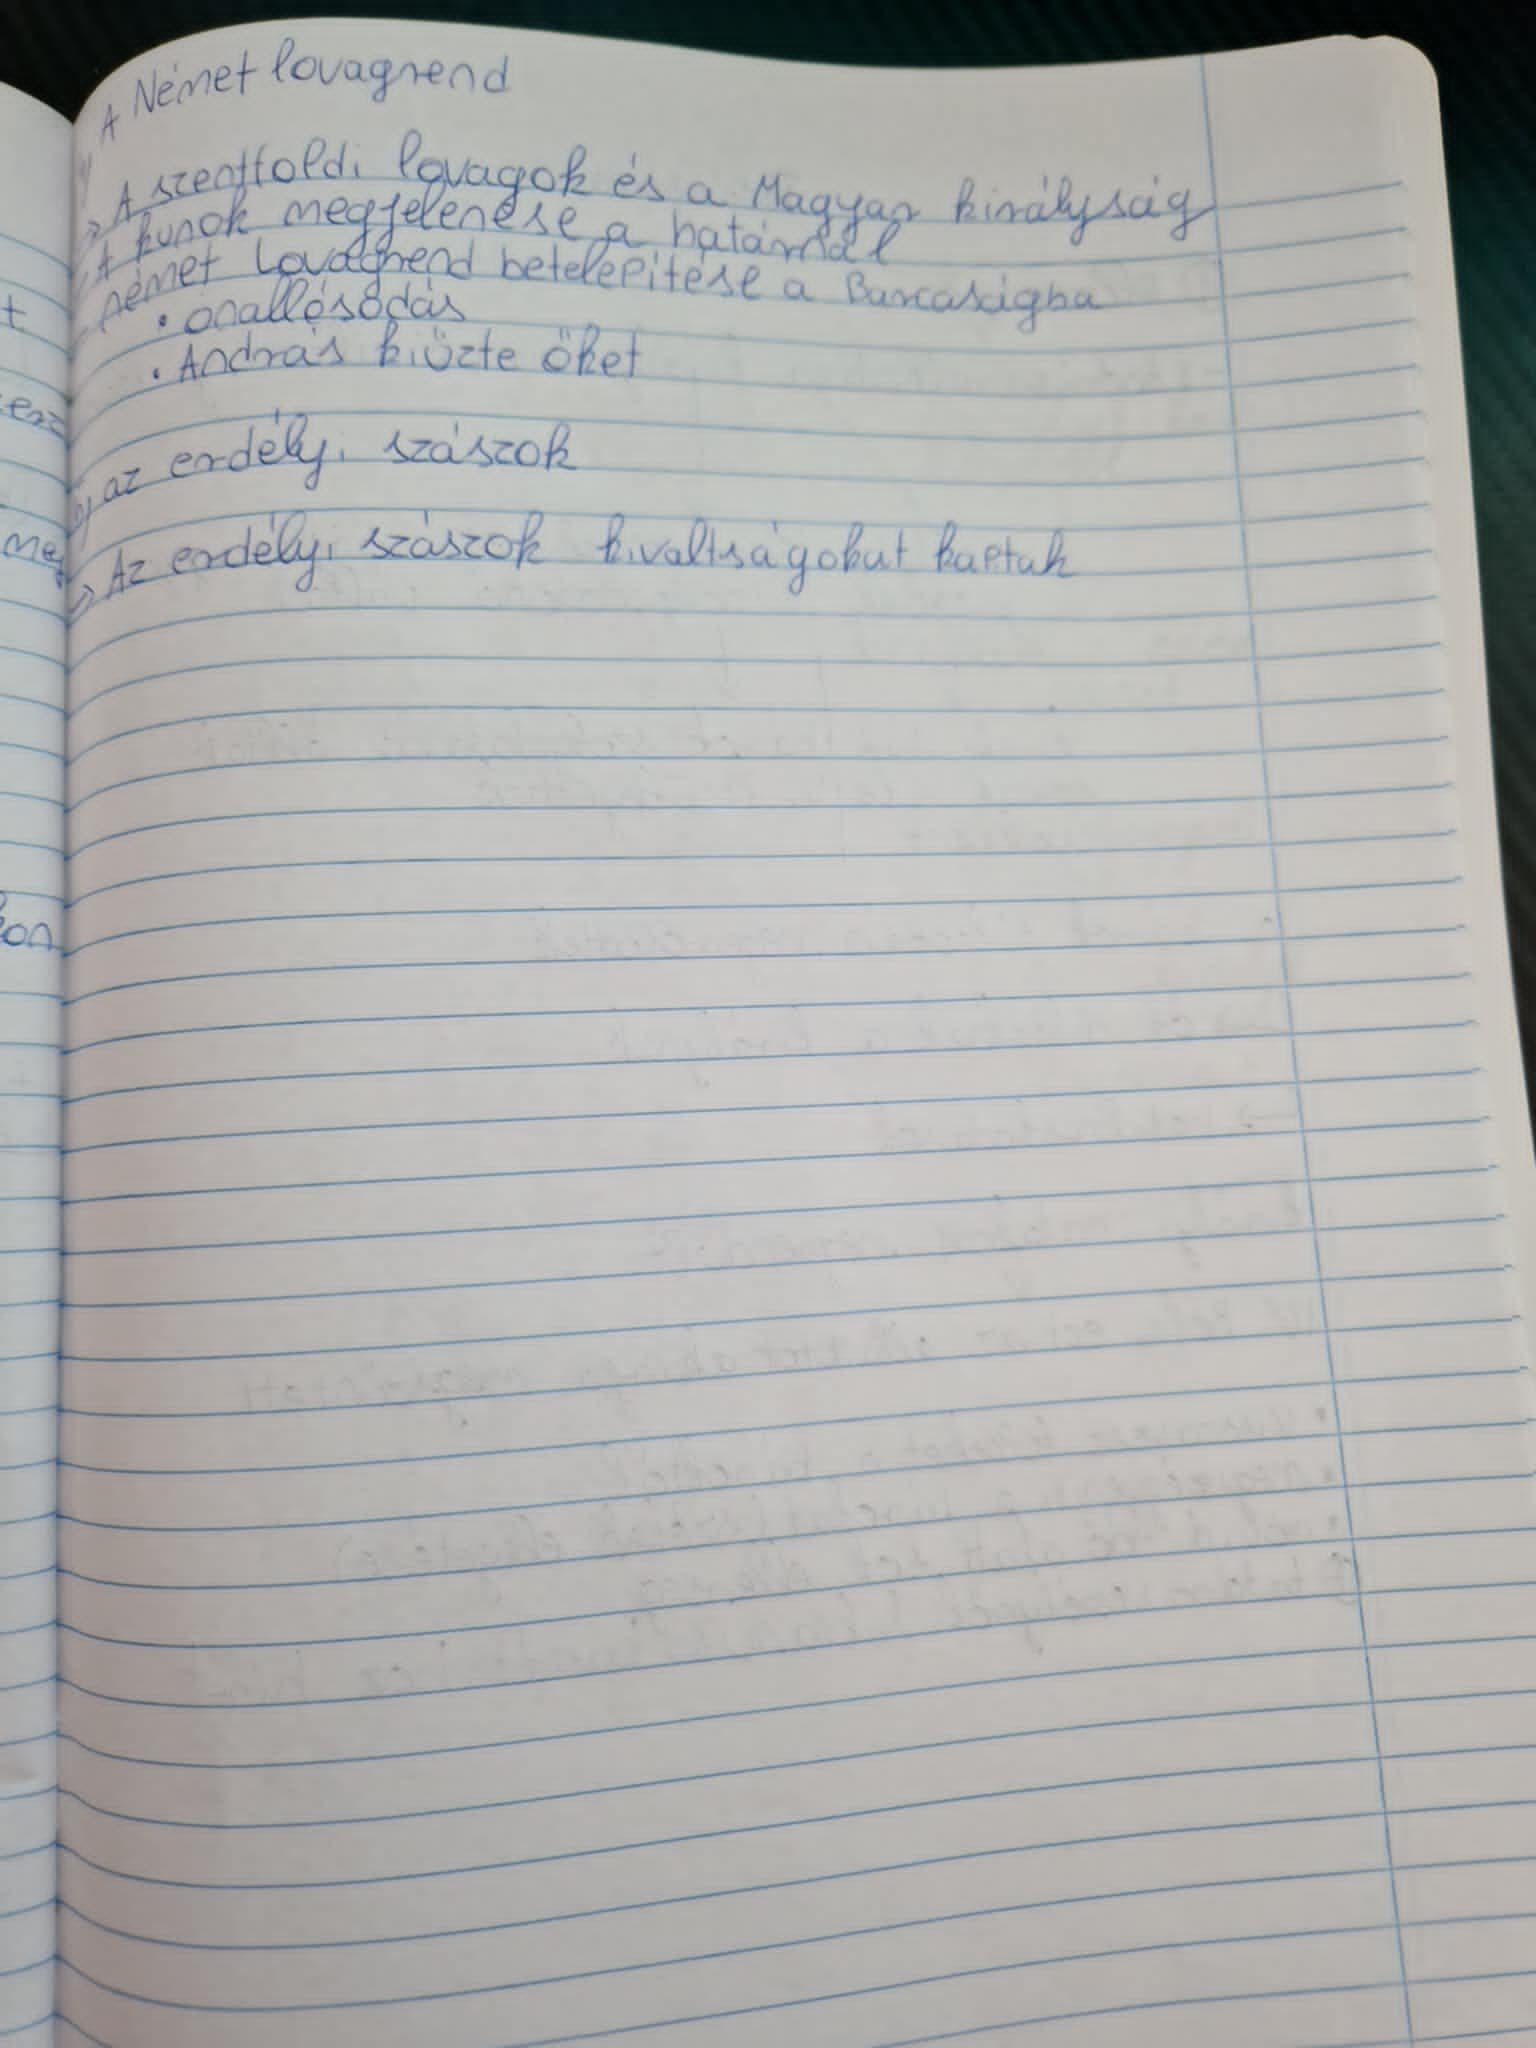 A Német lovagrend
→ A szentföldi lovagok és a Magyar királyság
A kunok megjelenése a határnál
német lovagrend betelepítése a Barcaságba
• önállósodás
• András kiűzte őket
az erdélyi szászok
→ Az erdélyi szászok kiváltságokat kaptak
t
erz
meg
kon